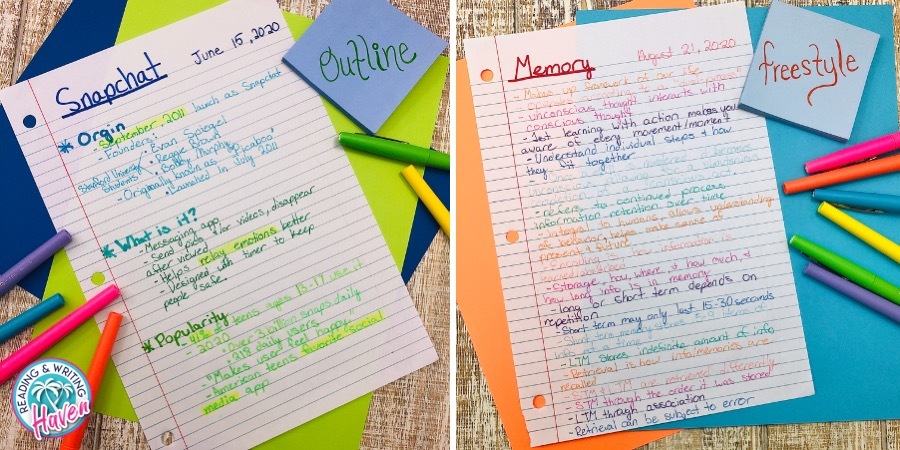 Snapchat
June 15, 2020
Outline
* Orgin
- September 2011 launch as Snapchat
- Founders:
Stanford University Students
- Evan Spiegel
- Reggie Brown
- Bobby Murphy
- Originally known as
- Launched in July 2011
* What is it?
- Messaging app
- Send pics and/or videos, disappear
after viewed
- Helps relay emotions better
- Designed with timer to keep
people safe
* Popularity
- 41% of teens ages 13-17 use it
- 2020 - Over 3 billion snaps daily
- 218 daily users
- Makes user feel "happy"
- American teens favorite social
media app
READING & WRITING
Haven
Memory
August 21, 2020
freestyle
- Makes up framework of our life
- unconscious thought interacts with
conscious thought
- 1st learning with action makes you
aware of every movement/moment
- Understand individual steps & how
they fit together
- refers to continued process
information retention over time
- Integral to humans, allows understanding
of behavior, helps make sense of
present & future
- Encoding is how information is
- Storage: how, where, & how much, &
how long info is in memory
- long or short term depends on
repetition
- Short term may only last 15-30 seconds
- Short term memory stores 5-9 items of
info at a time
- LTM stores indefinite amount of info
- Retrieval is how info/memories are
recalled
- STM & LTM are retrieved differently
- STM through the order it was stored
- LTM through association
- Retrieval can be subject to error